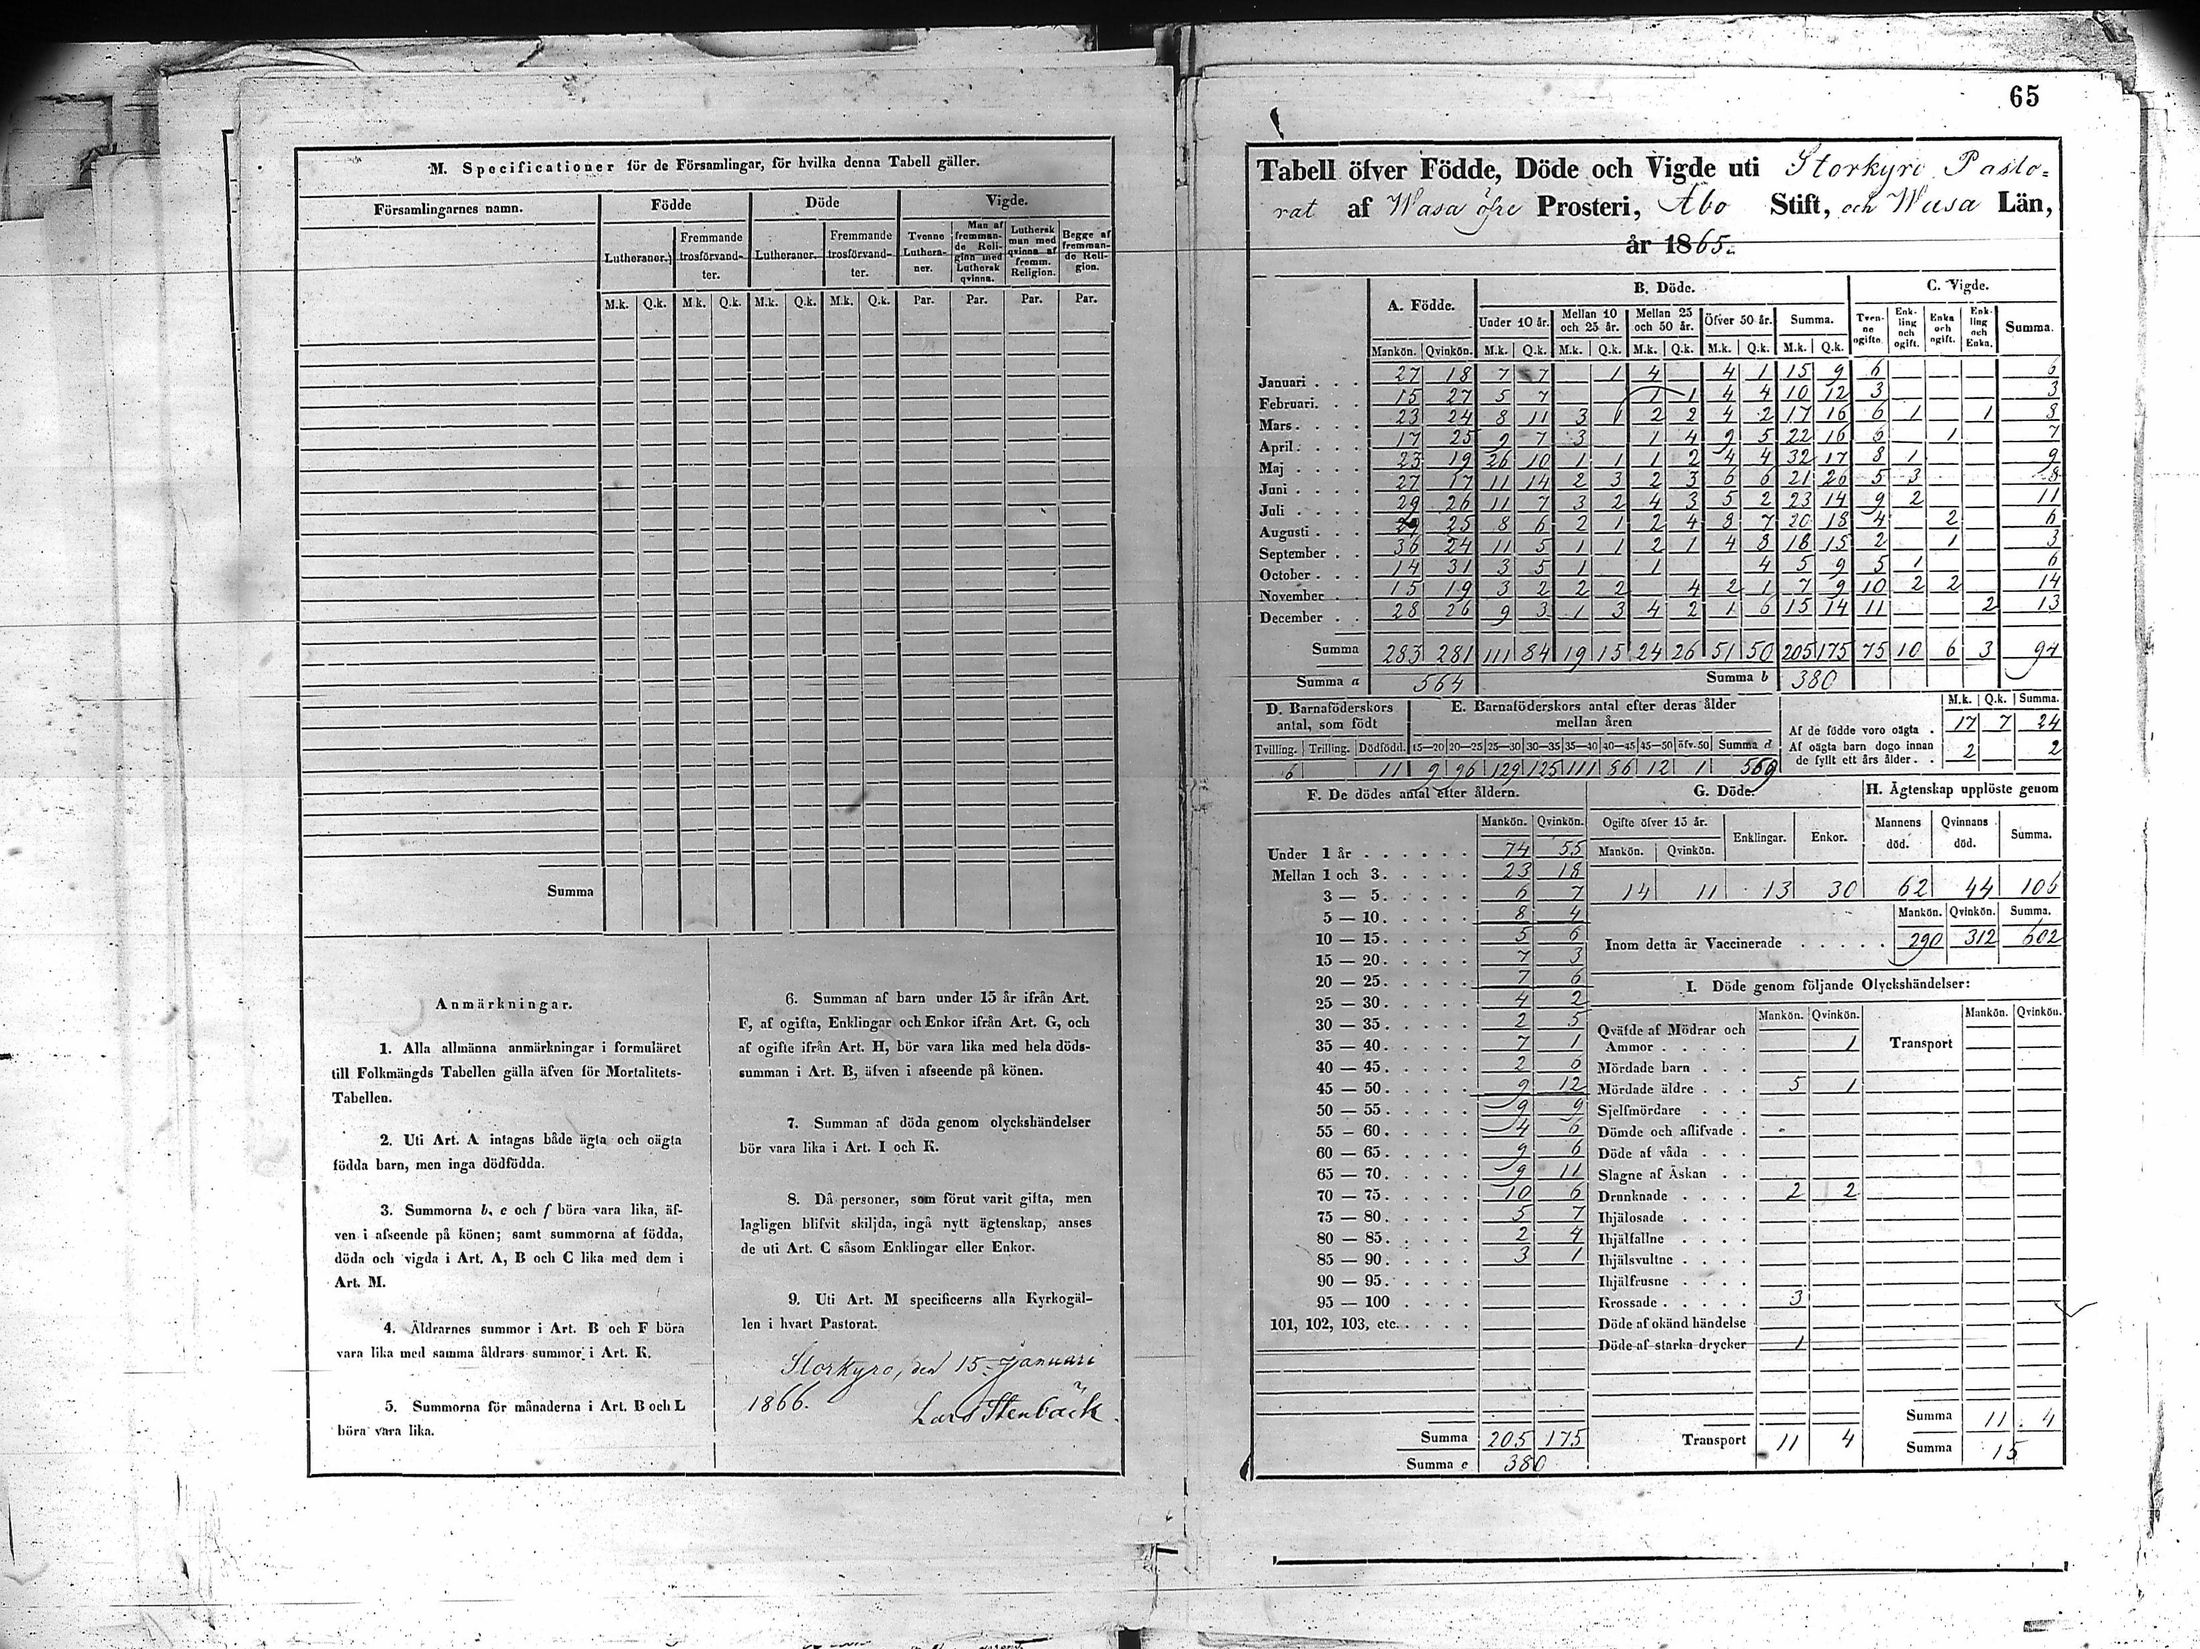 M. Specificationer för de Församlingar, för hvilka denna Tabell gäller.
Församlingarnes namn. Födde Döde Vigde.
Lutheraner. Fremmande trosförvandter. Lutheraner. Fremmande trosförvandter. Tvenne Lutheraner. Man af fremmande Religion med Luthersk qvinna. Luthersk man med qvinna af fremm. Religion. Begge af fremmande Religion.
M.k. Q.k. M.k. Q.k. M.k. Q.k. M.k. Q.k. Par. Par. Par. Par.
Summa
Anmärkningar.
1. Alla allmänna anmärkningar i formuläret
till Folkmängds Tabellen gälla äfven för Mortalitets-
Tabellen.
2. Uti Art. A intagas både ägta och oägta
födda barn, men inga dödfödda.
3. Summorna b, e och f böra vara lika, äf-
ven i afseende på könen; samt summorna af födda,
döda och vigda i Art. A, B och C lika med dem i
Art. M.
4. Åldrarnes summor i Art. B och F böra
vara lika med samma åldrars summor i Art. K.
5. Summorna för månaderna i Art. B och L
böra vara lika.
6. Summan af barn under 15 år ifrån Art.
F, af ogifta, Enklingar och Enkor ifrån Art. G, och
af ogifte ifrån Art. H, bör vara lika med hela döds-
summan i Art. B, äfven i afseende på könen.
7. Summan af döda genom olyckshändelser
bör vara lika i Art. I och K.
8. Då personer, som förut varit gifta, men
lagligen blifvit skiljda, ingå nytt ägtenskap, anses
de uti Art. C såsom Enklingar eller Enkor.
9. Uti Art. M specificeras alla Kyrkogäl-
len i hvart Pastorat.
Storkyro, den 15 Januari
1866.
Lars Stenbäck.
65
Tabell öfver Födde, Döde och Vigde uti Storkyro Pasto=
rat af Wasa öfre Prosteri, Åbo Stift, och Wasa Län,
år 1865.
A. Födde. B. Döde. C. Vigde.
Under 10 år. Mellan 10 och 25 år. Mellan 25 och 50 år. Öfver 50 år. Summa. Tvenne ogifte. Enkling och ogift. Enka och ogift. Enkling och Enka. Summa.
Mankön. Qvinkön. M.k. Q.k. M.k. Q.k. M.k. Q.k. M.k. Q.k. M.k. Q.k.
Januari . . . 27 18 7 7 1 4 4 1 15 9 6 6
Februari. . . 15 27 5 7 1 1 4 4 10 12 3 3
Mars . . . . 23 24 8 11 3 1 2 2 4 2 17 16 6 1 1 8
April . . . . 17 25 9 7 3 1 4 9 5 22 16 6 1 7
Maj . . . . 23 19 26 10 1 1 1 2 4 4 32 17 8 1 9
Juni . . . . 27 17 11 14 2 3 2 3 6 6 21 26 5 3 8
Juli . . . . 29 26 11 7 3 2 4 3 5 2 23 14 9 2 11
Augusti . . . 29 25 8 6 2 1 2 4 8 7 20 18 4 2 6
September . . 36 24 11 5 1 1 2 1 4 8 18 15 2 1 3
October . . . 14 31 3 5 1 1 4 5 9 5 1 6
November . . 15 19 3 2 2 2 4 2 1 7 9 10 2 2 14
December . . 28 26 9 3 1 3 4 2 1 6 15 14 11 2 13
Summa 283 281 111 84 19 15 24 26 51 50 205 175 75 10 6 3 94
Summa a 564 Summa b 380
D. Barnaföderskors antal, som födt
Tvilling. Trilling. Dödfödd.
6 11
E. Barnaföderskors antal efter deras ålder mellan åren
15—20 20—25 25—30 30—35 35—40 40—45 45—50 öfv. 50 Summa d
9 96 129 125 111 86 12 1 569
M.k. Q.k. Summa.
Af de födde voro oägta . 17 7 24
Af oägta barn dogo innan de fyllt ett års ålder . . 2 2
F. De dödes antal efter åldern.
Mankön. Qvinkön.
Under 1 år . . . . . . 74 55
Mellan 1 och 3. . . . . 23 18
3 — 5. . . . . 6 7
5 — 10. . . . . 8 4
10 — 15. . . . . 5 6
15 — 20. . . . . 7 3
20 — 25. . . . . 7 6
25 — 30. . . . . 4 2
30 — 35. . . . . 2 5
35 — 40. . . . . 7 1
40 — 45. . . . . 2 6
45 — 50. . . . . 9 12
50 — 55. . . . . 9 9
55 — 60. . . . . 4 6
60 — 65. . . . . 9 6
65 — 70. . . . . 9 11
70 — 75. . . . . 10 6
75 — 80. . . . . 5 7
80 — 85. . . . . 2 4
85 — 90. . . . . 3 1
90 — 95. . . . .
95 — 100 . . . .
101, 102, 103, etc. . . . .
Summa 205 175
Summa e 380
G. Döde.
Ogifte öfver 15 år. Enklingar. Enkor.
Mankön. Qvinkön.
14 11 13 30
H. Ägtenskap upplöste genom
Mannens död. Qvinnans död. Summa.
62 44 106
Mankön. Qvinkön. Summa.
Inom detta år Vaccinerade . . . . . 290 312 602
I. Döde genom följande Olyckshändelser:
Mankön. Qvinkön. Mankön. Qvinkön.
Qväfde af Mödrar och
Ammor . . . . . 1 Transport
Mördade barn . . .
Mördade äldre . . . 5 1
Sjelfmördare . . .
Dömde och aflifvade .
Döde af våda . . .
Slagne af Åskan . .
Drunknade . . . . 2 2
Ihjälosade . . . .
Ihjälfallne . . . .
Ihjälsvultne . . . .
Ihjälfrusne . . . .
Krossade . . . . . 3
Döde af okänd händelse
Döde af starka drycker 1
Summa 11 4
Transport 11 4 Summa 15